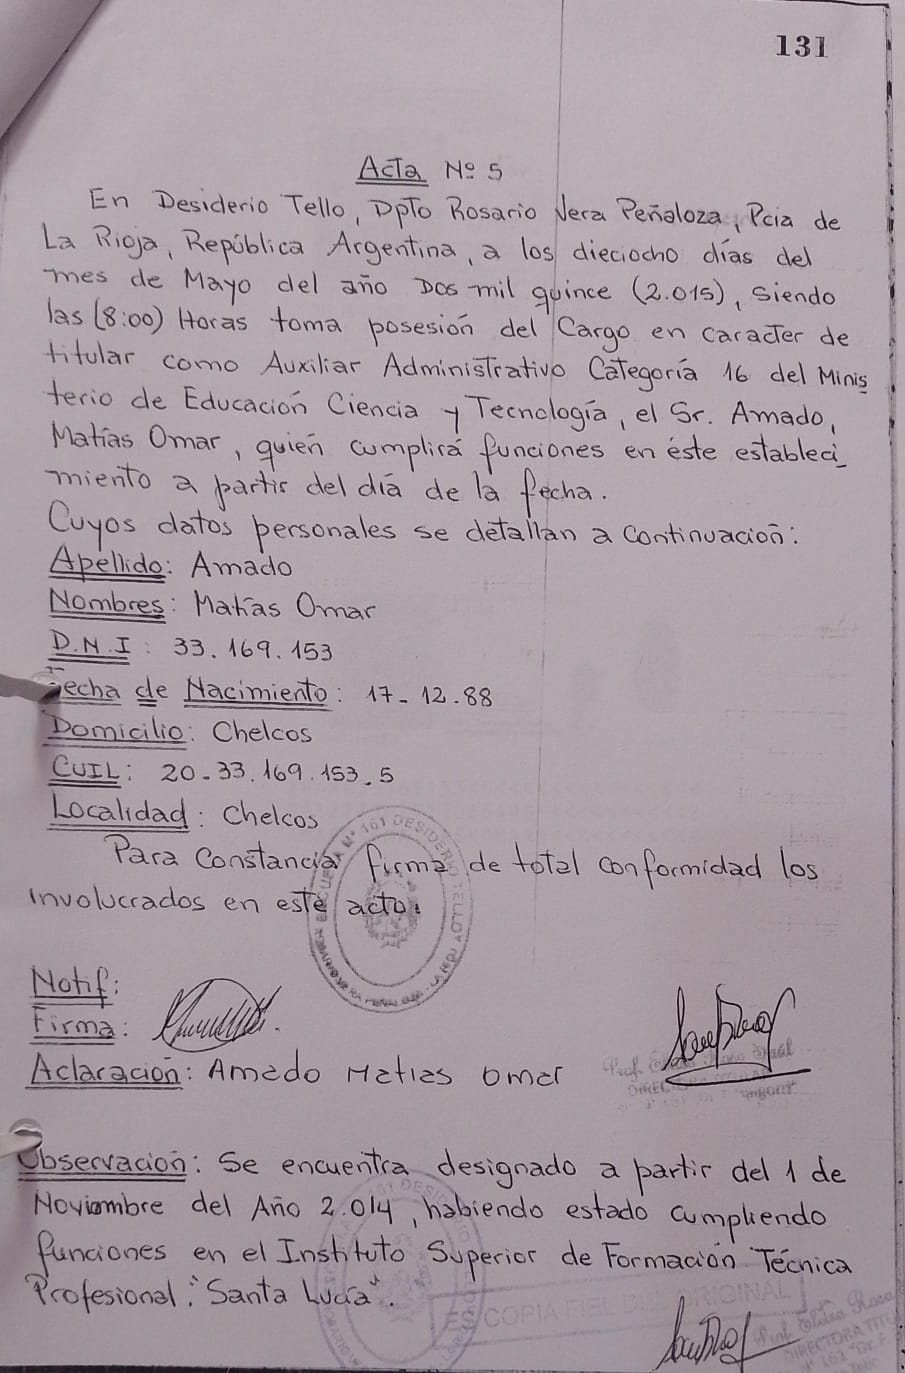 131
Acta Nº 5
En Desiderio Tello, Dpto Rosario Vera Peñaloza, Pcia de
La Rioja, República Argentina, a los dieciocho días del
mes de Mayo del año Dos mil quince (2.015), siendo
las (8:00) Horas toma posesión del Cargo en caracter de
titular como Auxiliar Administrativo Categoría 16 del Minis
terio de Educación Ciencia y Tecnología, el Sr. Amado,
Matías Omar, quien cumplirá funciones en éste estableci_
miento a partir del día de la fecha.
Cuyos datos personales se detallan a continuación:
Apellido: Amado
Nombres: Matías Omar
D.N.I: 33.169.153
Fecha de Nacimiento: 17-12.88
Domicilio: Chelcos
CUIL: 20-33.169.153.5
Localidad: Chelcos
Para Constancia firma de total conformidad los
involucrados en este acto.
Notif:
Firma:
Aclaración: Amado Matias omar
Observación: Se encuentra designado a partir del 1 de
Noviembre del Año 2.014, habiendo estado cumpliendo
funciones en el Instituto Superior de Formación Técnica
Profesional: "Santa Lucía".
ES COPIA FIEL DEL ORIGINAL